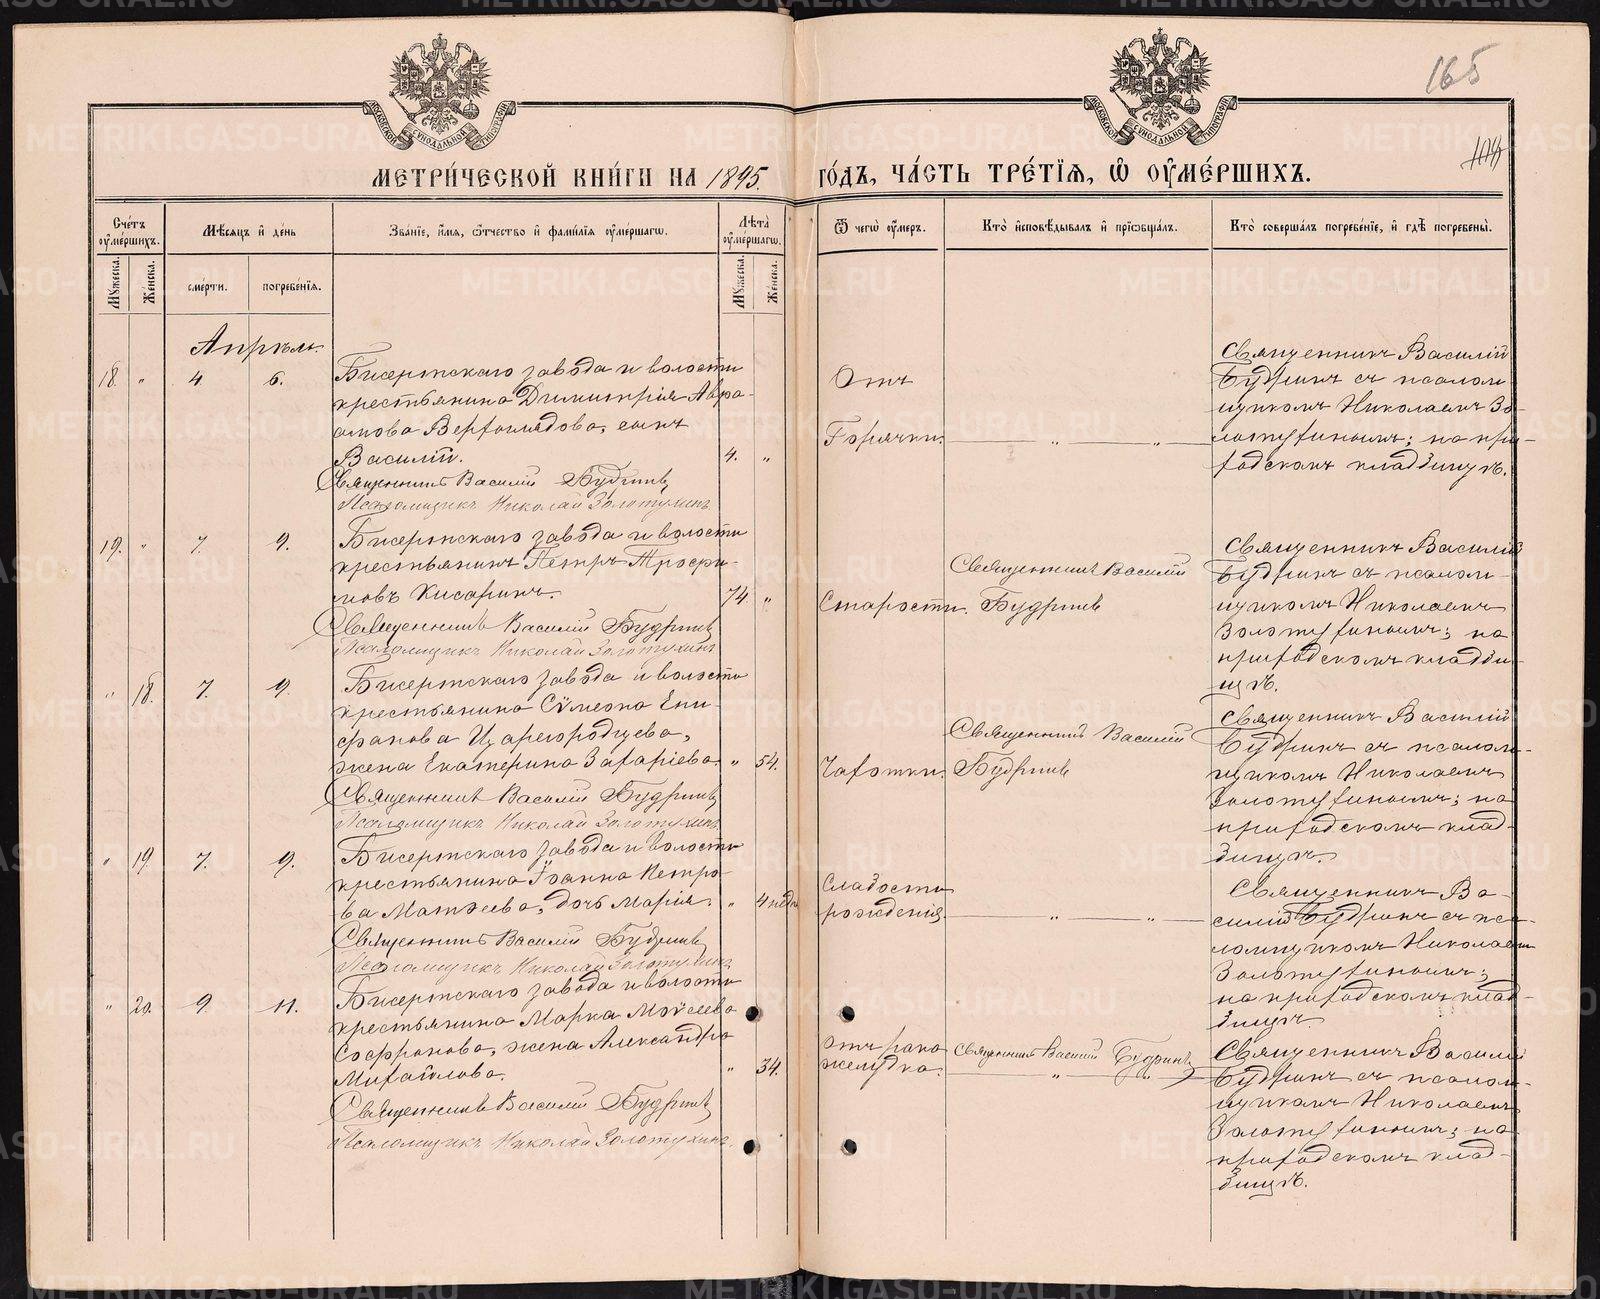 165
104
МОСКОВСКОЙ СѴНОДАЛЬНОЙ ТИПОГРАФІИ
МОСКОВСКОЙ СѴНОДАЛЬНОЙ ТИПОГРАФІИ
МЕТРИ́ЧЕСКОЙ КНИ́ГИ НА 1895. ГО́ДЪ, ЧА́СТЬ ТРЕ́ТІѦ, Ѡ҆ ОУ҆МЕ́РШИХЪ.
Сче́тъ оу҆ме́ршихъ.
Мꙋ́жеска.
Же́нска.
Мѣ́сяцъ и҆ де́нь
сме́рти.
погребе́нїѧ.
Зва́нїе, и҆́мѧ, ѻ҆́тчество и҆ фами́лїѧ оу҆ме́ршагѡ.
Лѣ́та оу҆ме́ршагѡ.
Мꙋ́жеска.
Же́нска.
Ѿ чегѡ̀ оу҆́меръ.
Кто̀ и҆сповѣ́дывалъ и҆ прїѡбща́лъ.
Кто̀ соверша́лъ погребе́нїе, и҆ гдѣ̀ погребены̀.
Апрѣль.
18. " 4 6.
Бисертскаго завода и волости
крестьянина Димитрія Авра-
амова Верхоглядова, сынъ
Василій. 4. "
Священникъ Василій Будринъ
Псаломщикъ Николай Золотухинъ
Отъ
Горячки.
Священникъ Василій
Будринъ съ псалом-
щикомъ Николаемъ Зо-
лотухинымъ; на при-
ходскомъ кладбищѣ.
19. " 7. 9.
Бисертскаго завода и волости
крестьянинъ Петръ Трофи-
мовъ Кисаринъ. 74 "
Священникъ Василій Будринъ
Псаломщикъ Николай Золотухинъ
Старости.
Священникъ Василій
Будринъ
Священникъ Василій
Будринъ съ псалом-
щикомъ Николаемъ
Золотухинымъ; на
приходскомъ кладби-
щѣ.
" 18. 7. 9.
Бисертскаго завода и волости
крестьянина Сѵмеона Епи-
фанова Царегородцева,
жена Екатерина Захаріева. " 54.
Священникъ Василій Будринъ
Псаломщикъ Николай Золотухинъ
Чахотки.
Священникъ Василій
Будринъ
Священникъ Василій
Будринъ съ псалом-
щикомъ Николаемъ
Золотухинымъ; на
приходскомъ клад-
бищѣ.
" 19. 7. 9.
Бисертскаго завода и волости
крестьянина Іоанна Петро-
ва Матѳеева, дочь Марія. " 4 недѣ
Священникъ Василій Будринъ
Псаломщикъ Николай Золотухинъ
Слабости
рожденія.
Священникъ Ва-
силій Будринъ съ пса-
ломщикомъ Николаемъ
Золотухинымъ;
на приходскомъ клад-
бищѣ.
" 20. 9. 11.
Бисертскаго завода и волости
крестьянина Марка Моѵсеева
Софронова, жена Александра
Михайлова. " 34.
Священникъ Василій Будринъ
Псаломщикъ Николай Золотухинъ.
Отъ рака
желудка.
Священникъ Василій Будринъ
Священникъ Василій
Будринъ съ псалом-
щикомъ Николаемъ
Золотухинымъ; на
приходскомъ клад-
бищѣ.
METRIKI.GASO-URAL.RU